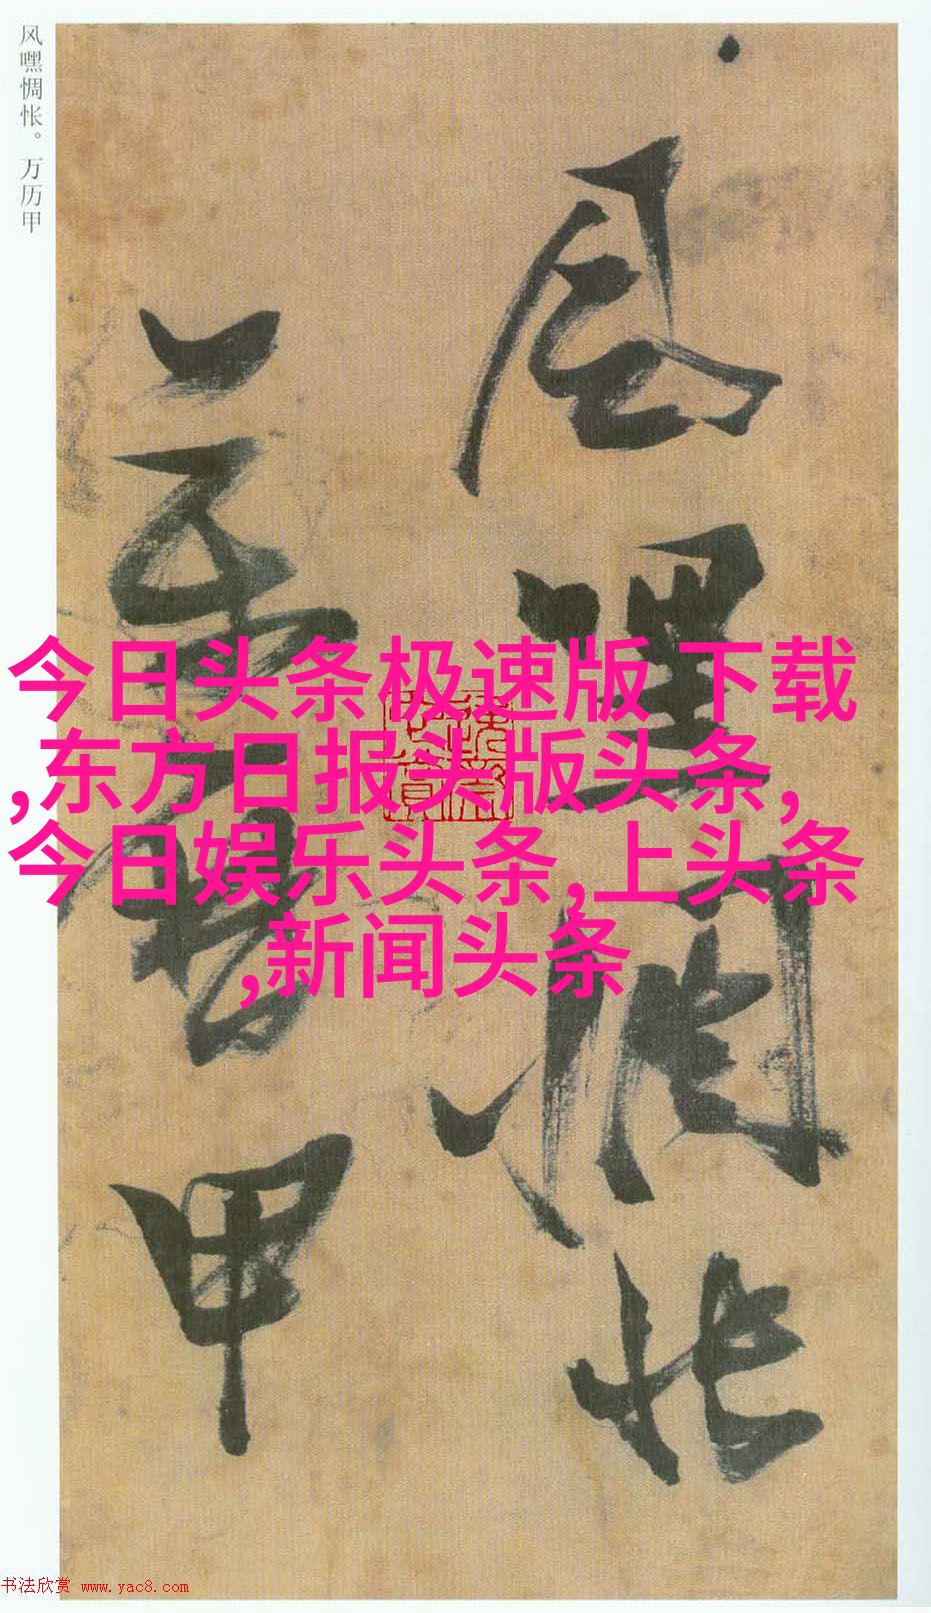 风嘿惆怅。万历甲
风嘿惆怅
万历甲
今日头条极速版 下载
,东方日报头版头条,
今日娱乐头条,上头条
,新闻头条
书法欣赏 www.yac8.com